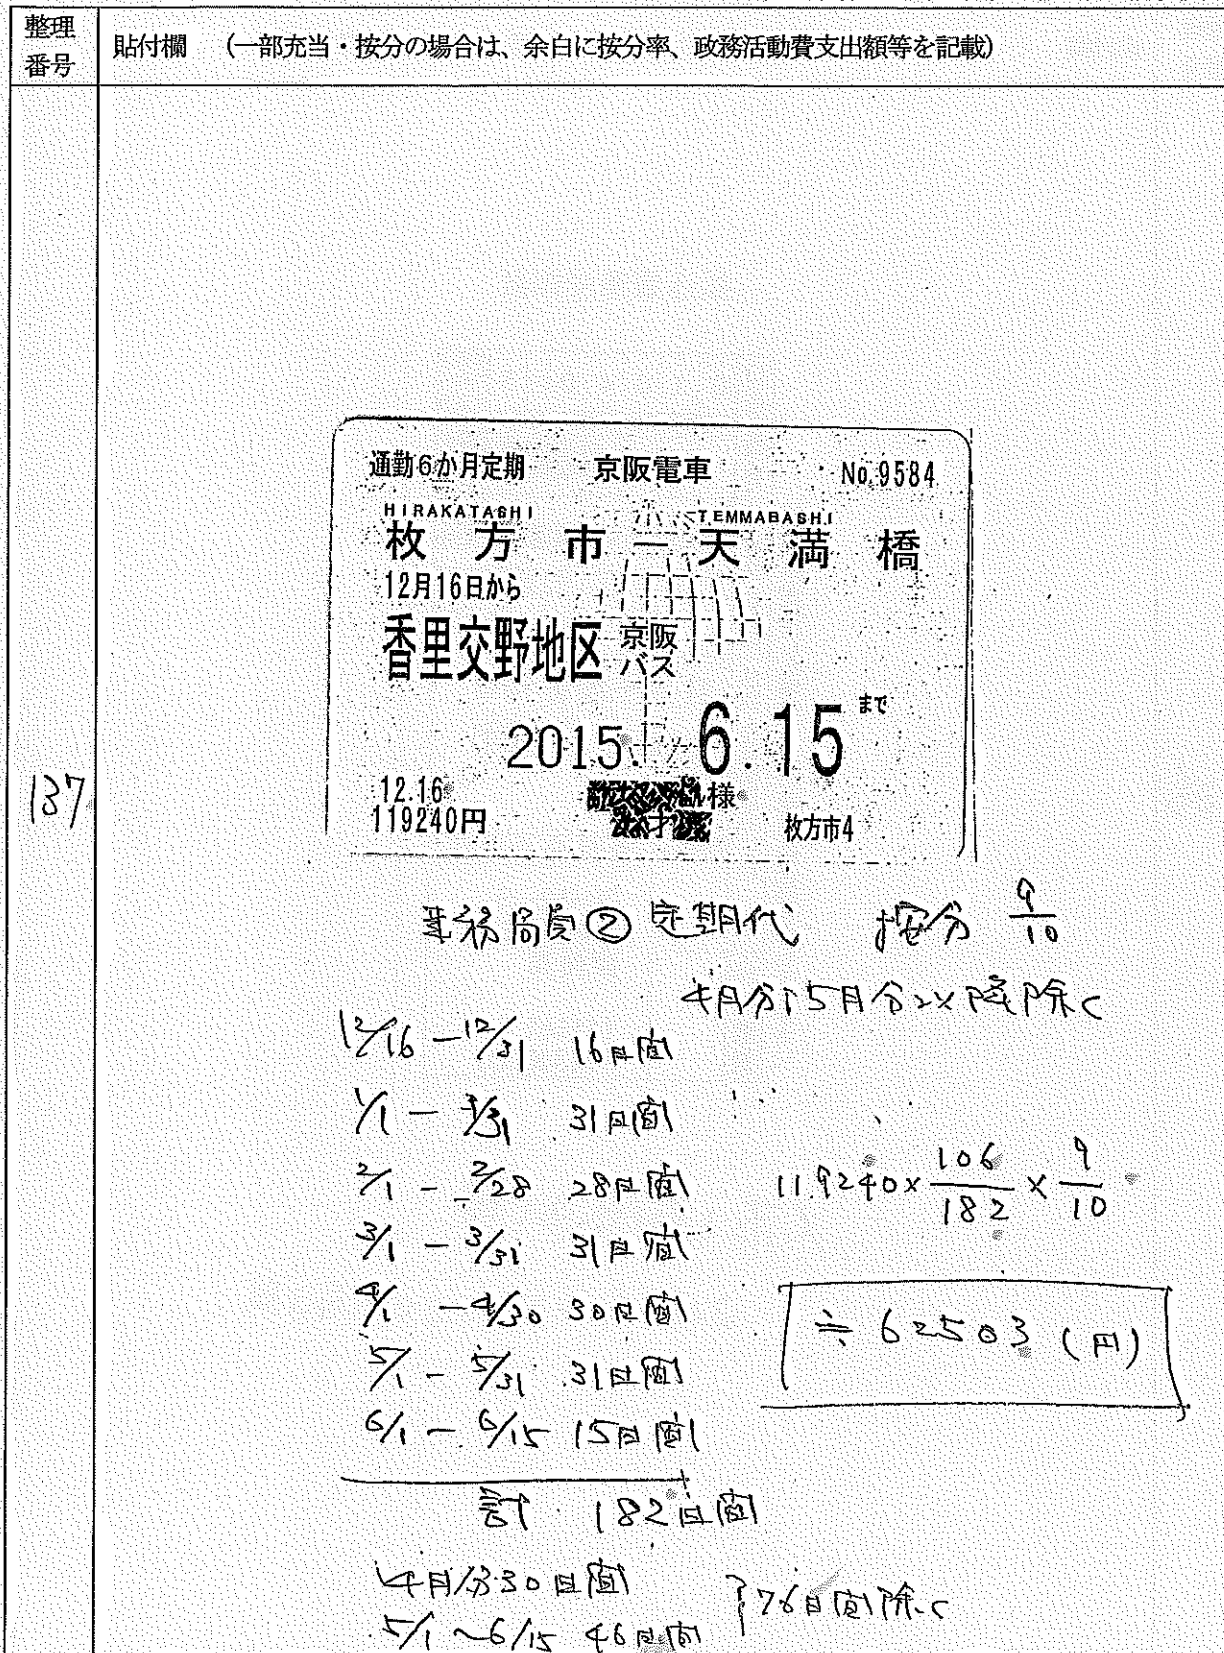 整理番号
貼付欄 (一部充当・按分の場合は、余白に按分率、政務活動費支出額等を記載)
137
通勤6か月定期 京阪電車 No.9584
HIRAKATASHI TEMMABASHI
枚方市-天満橋
12月16日から
香里交野地区 京阪バス
2015. 6.15まで
12.16
119240円 様 枚方市4
業務局員② 定期代 按分 9/10
4月分15月分以降除く
12/16-12/31 16日間
1/1-1/31 31日間
2/1-2/28 28日間 119240×106/182×9/10
3/1-3/31 31日間
4/1-4/30 30日間 ≒62503(円)
5/1-5/31 31日間
6/1-6/15 15日間
計 182日間
4月分30日間
5/1~6/15 46日間 }76日間除く